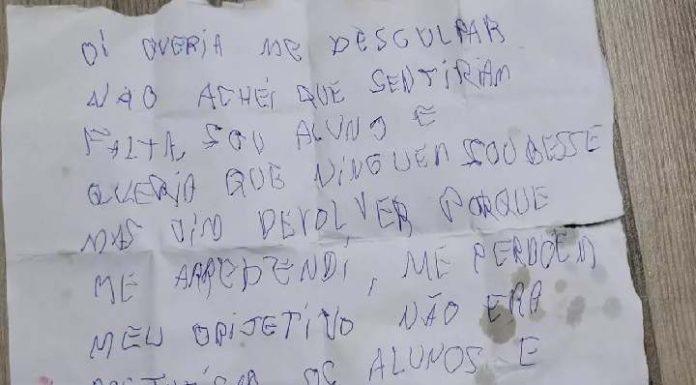 OI QUERIA ME DESCULPAR
NÃO ACHEI QUE SENTIRIAM
FALTA, SOU ALUNO E
QUERIA QUE NINGUEM SOUBESSE
MAS VIM DEVOLVER PORQUE
ME ARREPENDI, ME PERDOEM
MEU OBIJETIVO NÃO ERA
OS ALUNOS E